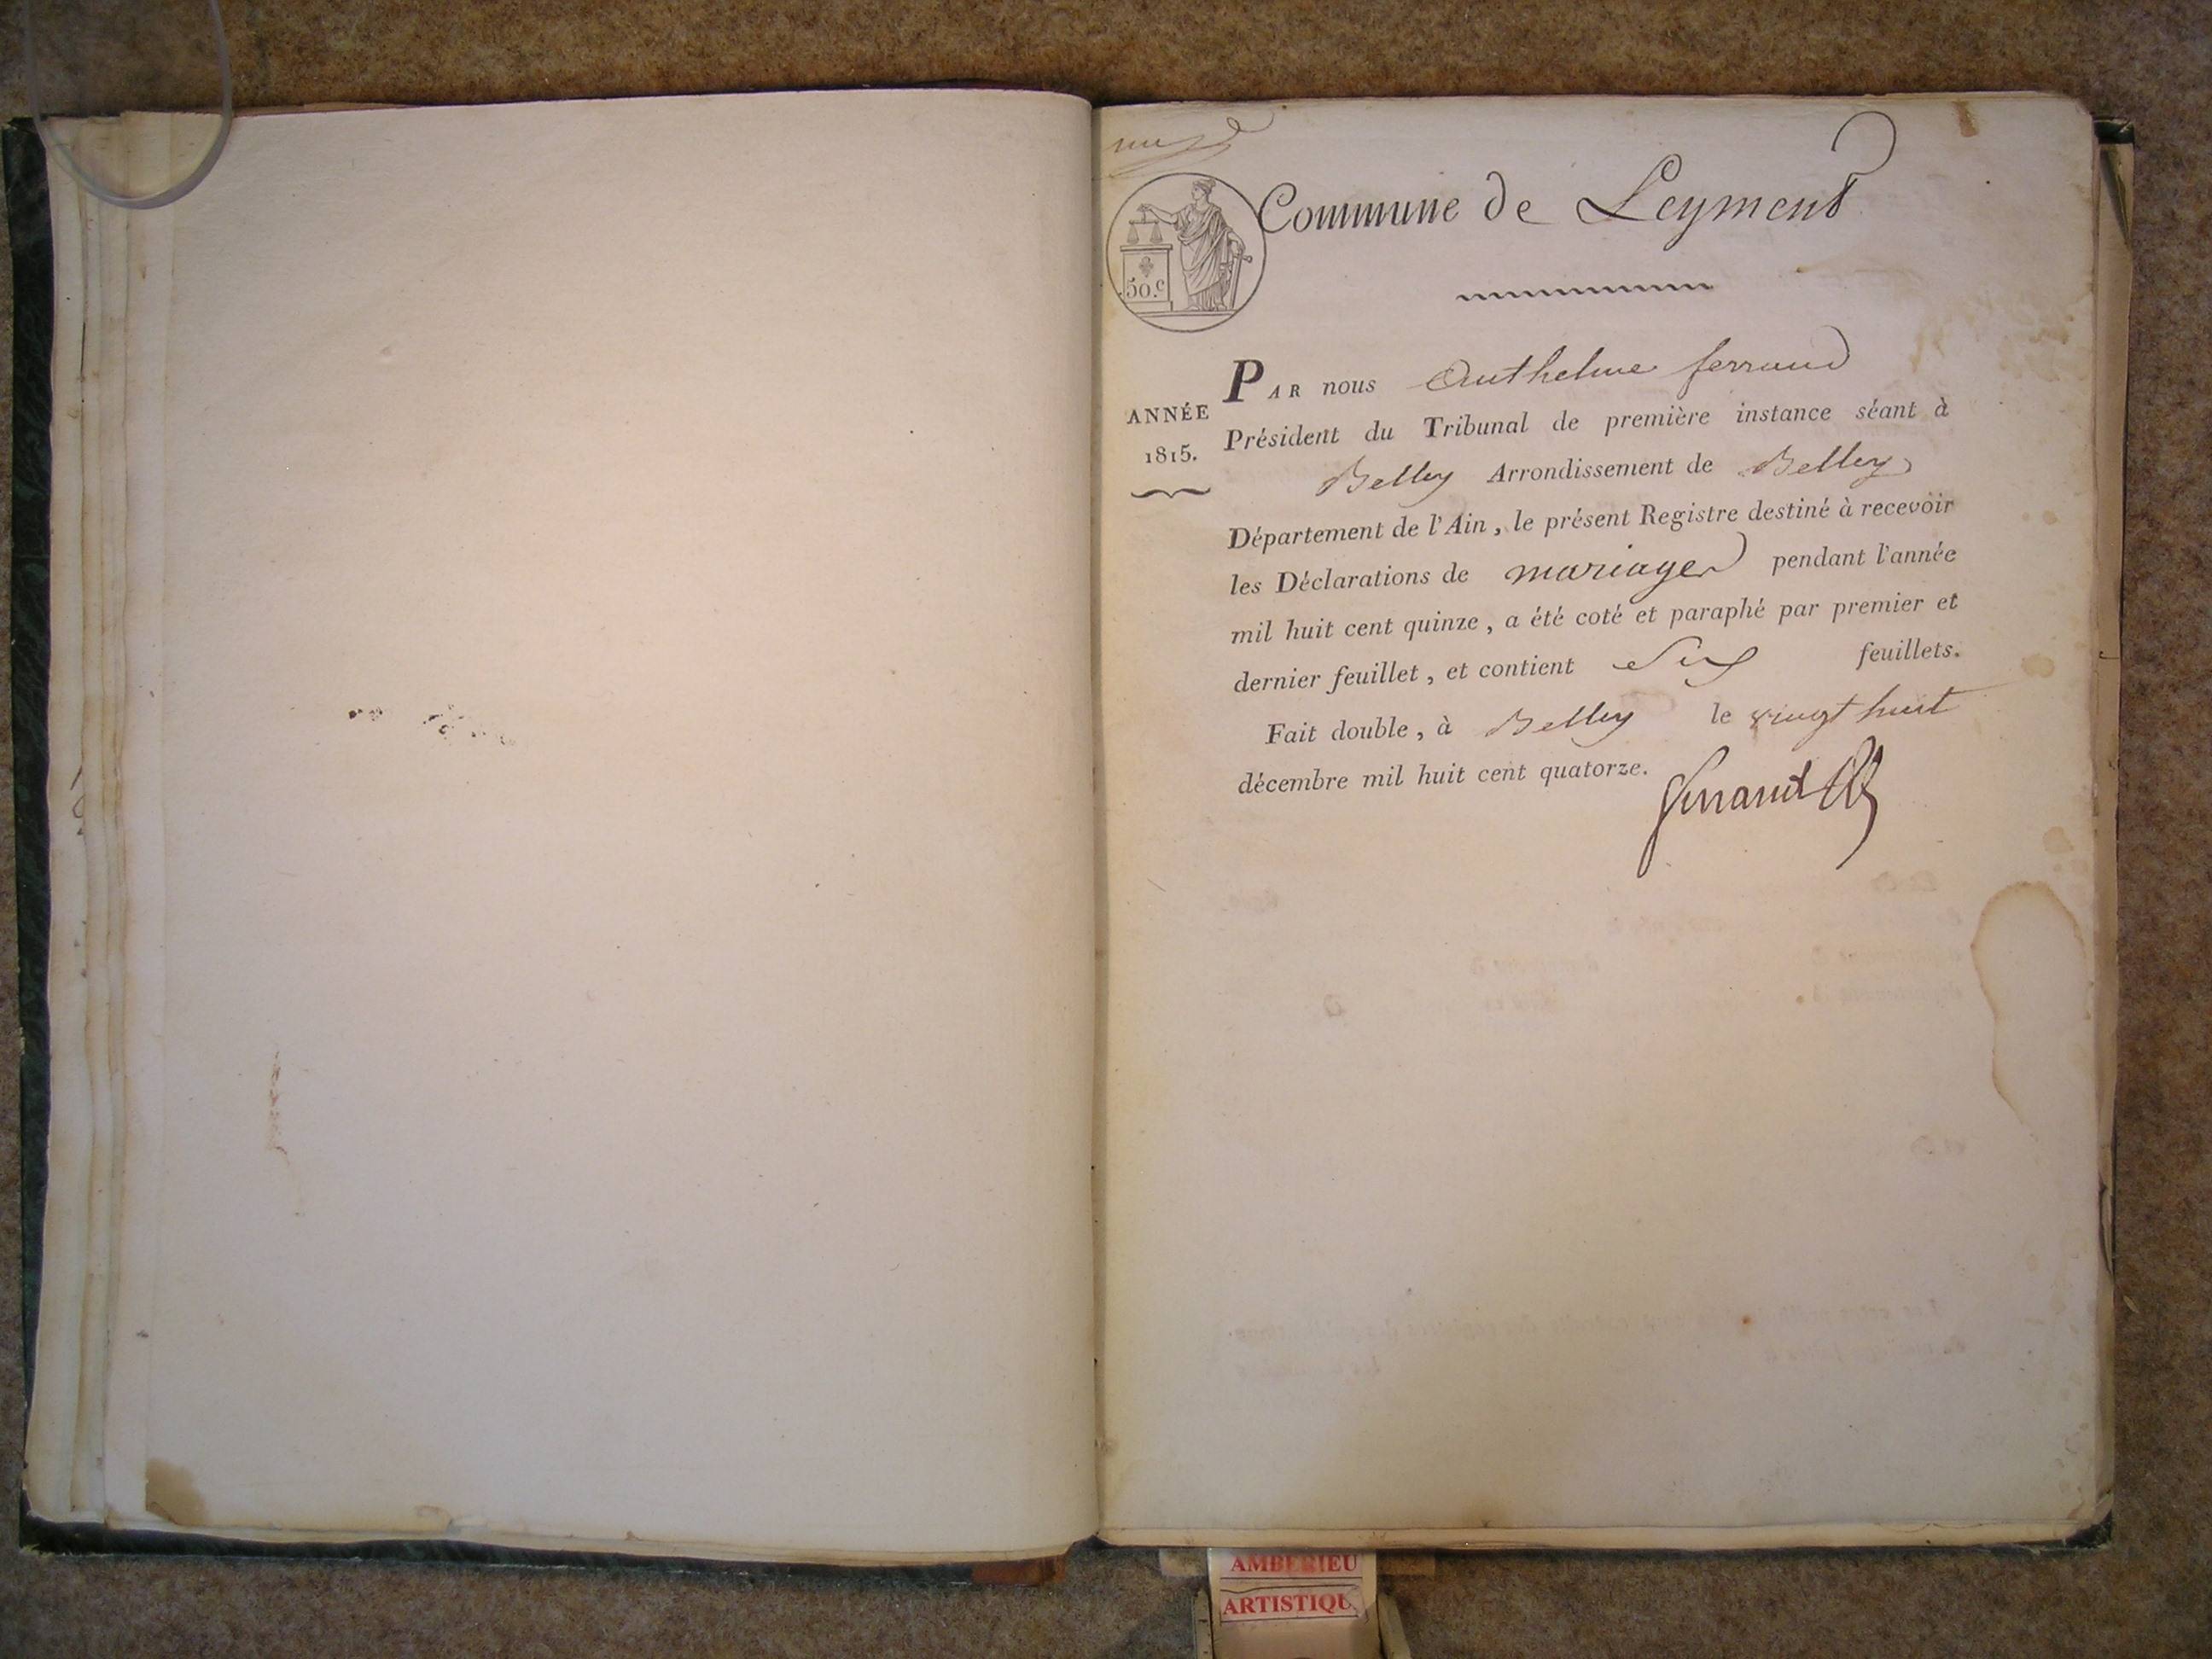 Commune de Leyment
50.c
ANNÉE
1815.
PAR nous Anthelme ferrand
Président du Tribunal de première instance séant à
Belley Arrondissement de Belley
Département de l'Ain, le présent Registre destiné à recevoir
les Déclarations de mariages pendant l'année
mil huit cent quinze, a été coté et paraphé par premier et
dernier feuillet, et contient Six feuillets.
Fait double, à Belley le vingt huit
décembre mil huit cent quatorze.
ferrand
AMBERIEU
ARTISTIQU